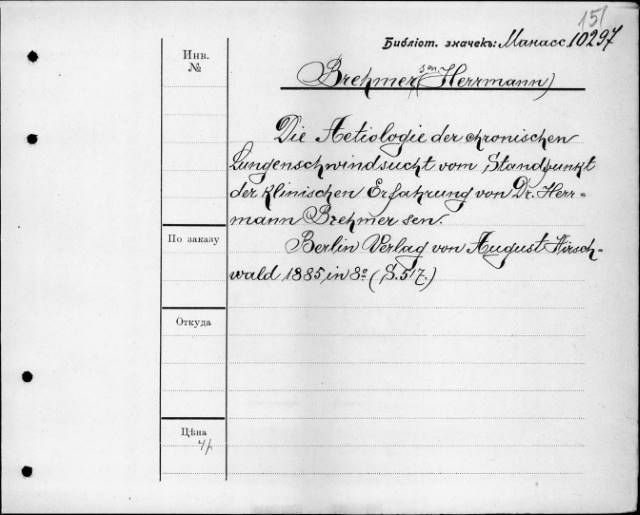 151
Библіот. значекъ: Манасс. 10297
Инв.
№
Brehmer, sen. (Herrmann)
Die Aetiologie der chronischen
Lungenschwindsucht vom Standpunkt
der klinischen Erfahrung von Dr. Herr-
mann Brehmer sen.
По заказу
Berlin Verlag von August Hirsch-
wald 1885, in 8º (S. 517.)
Откуда
Цѣна